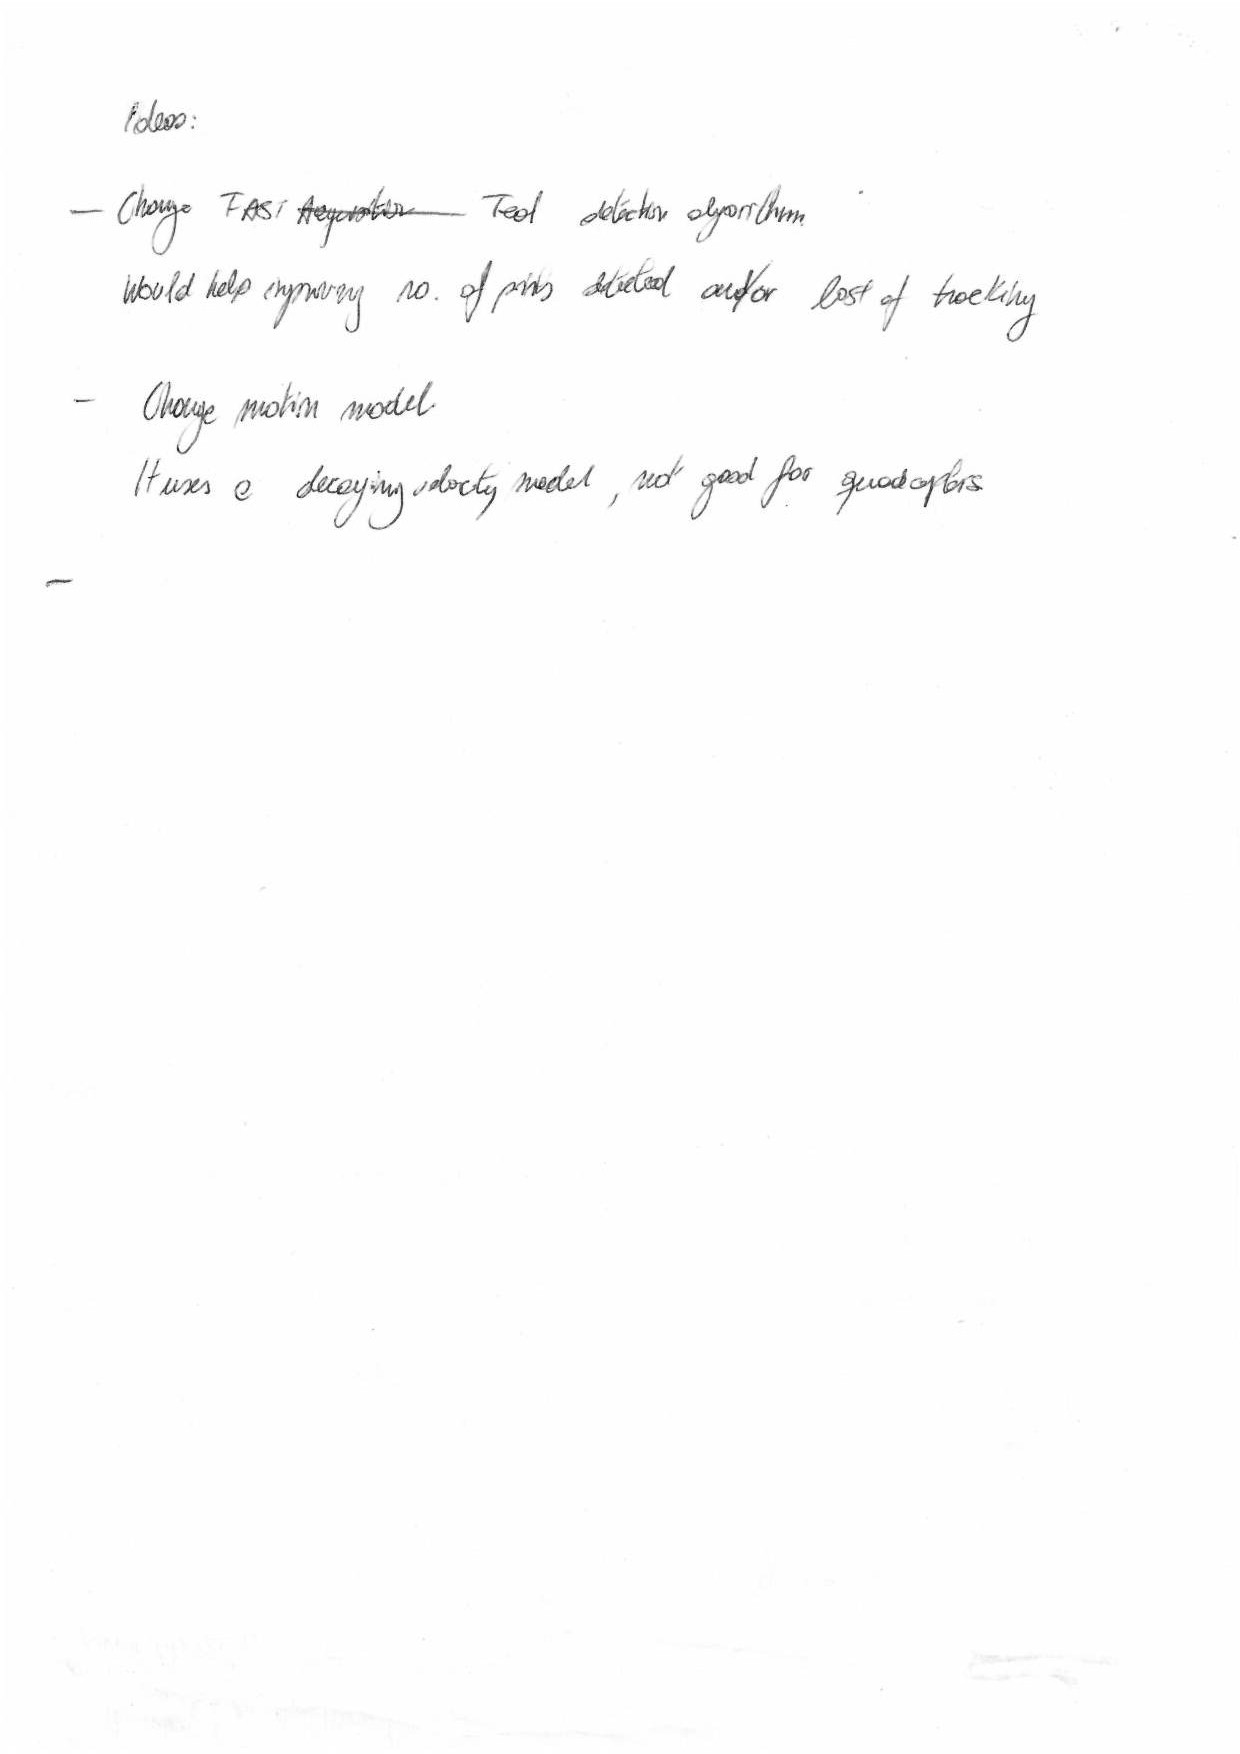 Ideas:
- Change FAST detection algorithm
Would help improving no. of points detected and/or lost of tracking
- Change motion model.
It uses a decaying velocity model, not good for quadcopters
-